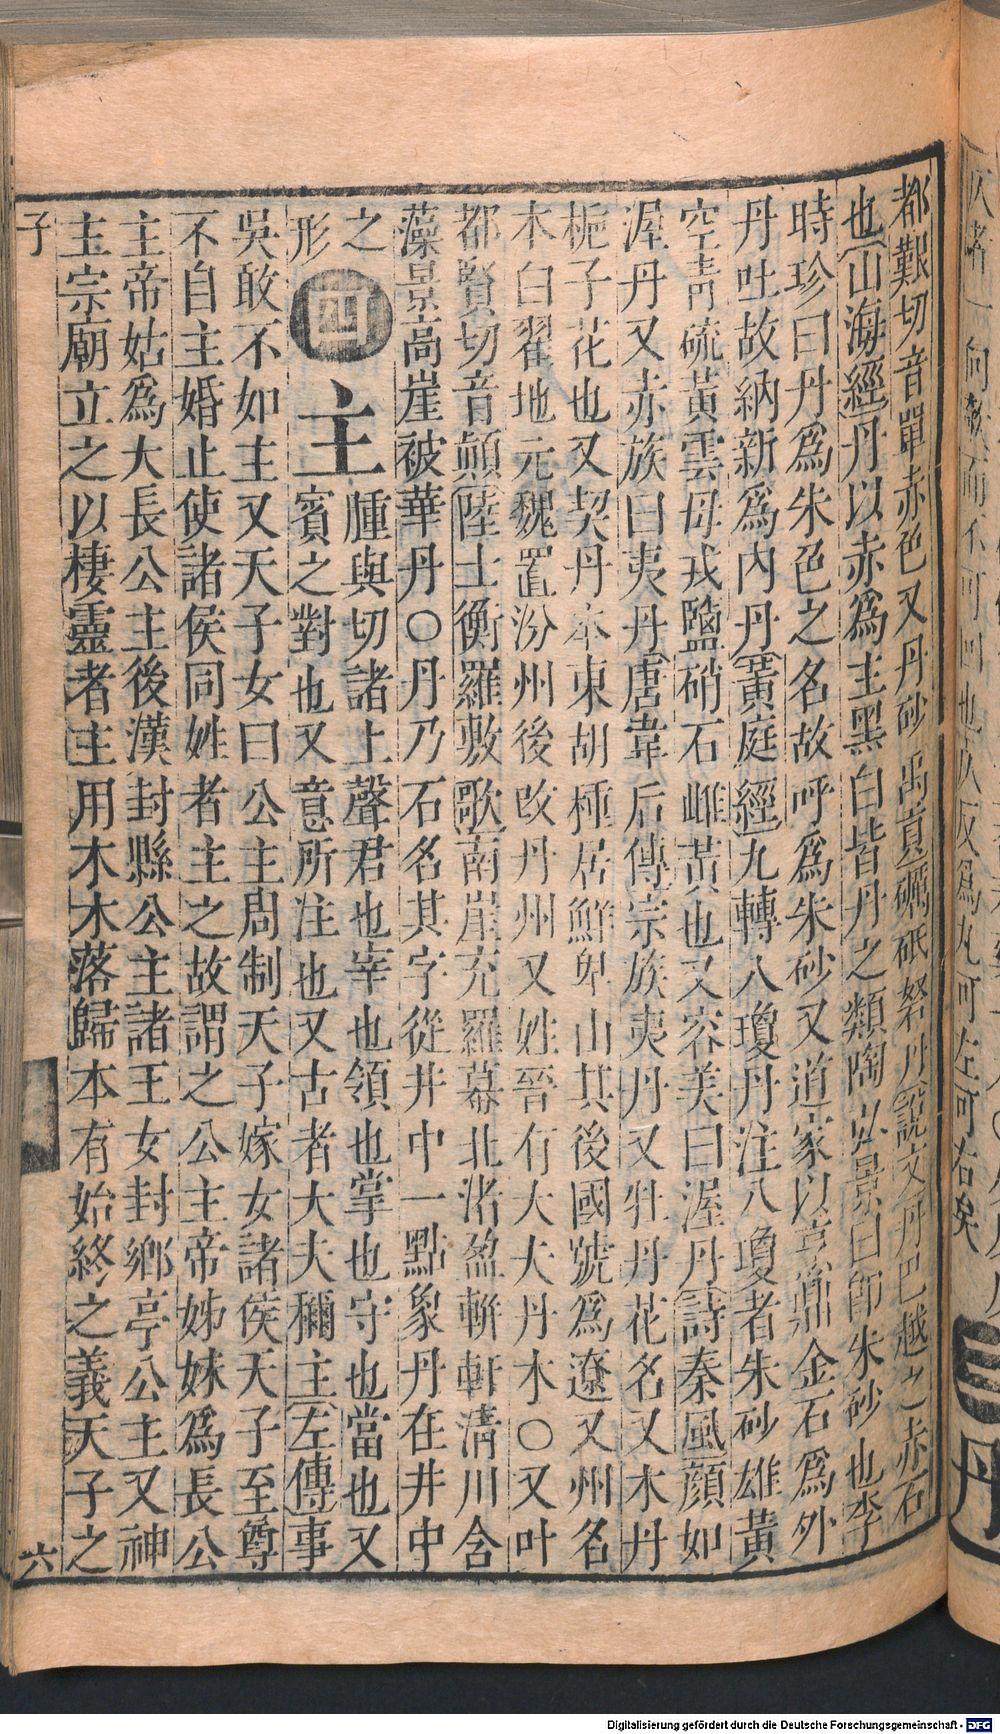 都艱切音單赤色又丹砂禹貢礪砥砮丹說文丹巴越之赤石
也山海經丹以赤爲主黑白皆丹之類陶弘景曰卽朱砂也李
時珍曰丹爲朱色之名故呼爲朱砂又道家以烹鼎金石爲外
丹吐故納新爲內丹黃庭經九轉八瓊丹注八瓊者朱砂雄黃
空靑硫黃雲母戎鹽硝石雌黃也又容美曰渥丹詩秦風顔如
渥丹又赤族曰夷丹唐韋后傳宗族夷丹又牡丹花名又木丹
梔子花也又契丹本東胡種居鮮卑山其後國號爲遼又州名
本白翟地元魏置汾州後改丹州又姓晉有大夫丹木○又叶
都賢切音顚陸士衡羅敷歌南崖充羅幕北渚盈軿軒淸川含
藻景高崖被華丹○丹乃石名其字從井中一點象丹在井中
之形
四
主
腫與切諸上聲君也宰也領也掌也守也當也又
賓之對也又意所注也又古者大夫稱主左傳事
吳敢不如主又天子女曰公主周制天子嫁女諸侯天子至尊
不自主婚止使諸侯同姓者主之故謂之公主帝姊妹爲長公
主帝姑爲大長公主後漢封縣公主諸王女封鄉亭公主又神
主宗廟立之以棲靈者主用木木落歸本有始終之義天子之
子
六
丹
Digitalisierung gefördert durch die Deutsche Forschungsgemeinschaft - DFG